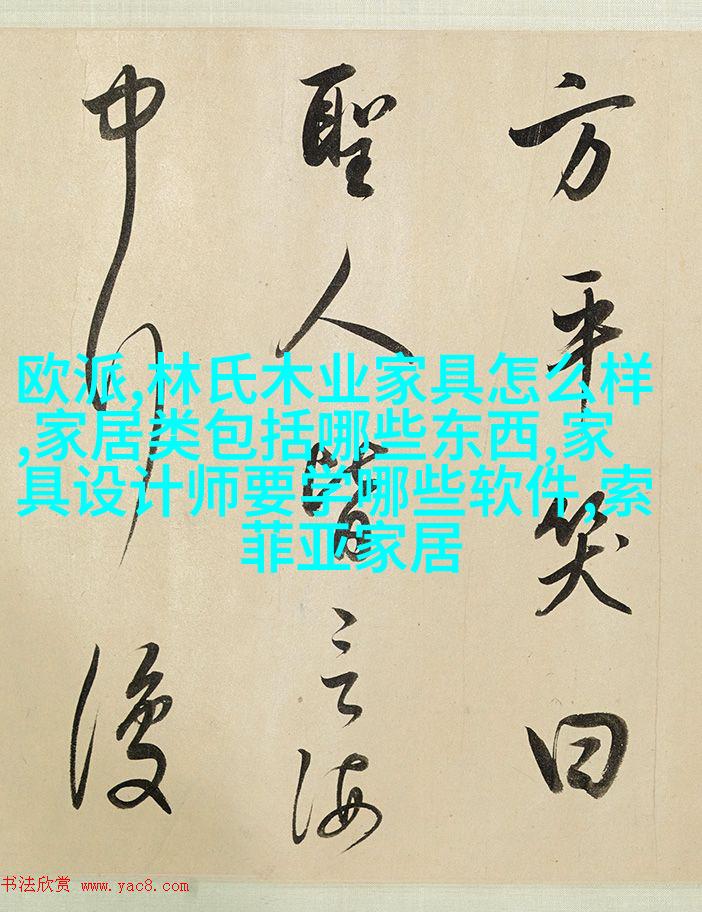 方平笑曰
聖人皆言海
中行復
欧派,林氏木业家具怎么样
,家居类包括哪些东西,家
具设计师要学哪些软件,索
菲亚家居
书法欣赏 www.yac8.com